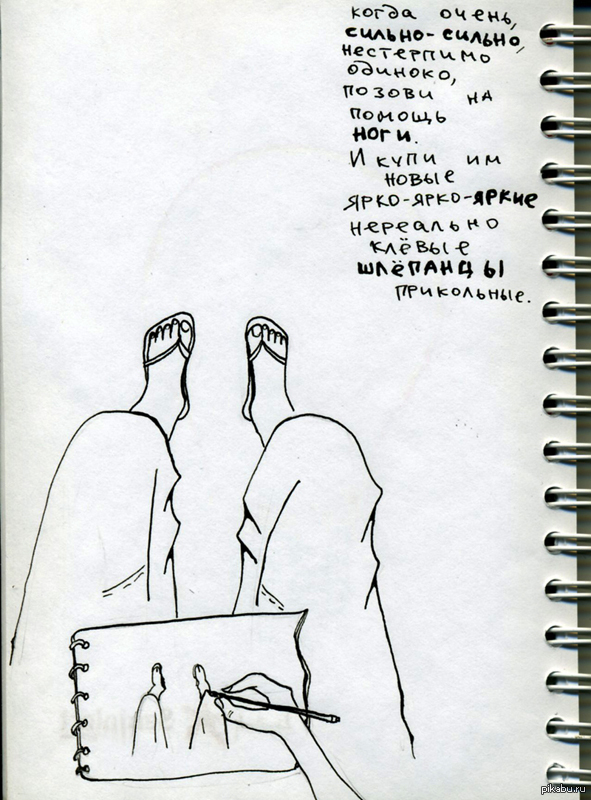 когда очень,
сильно-сильно,
нестерпимо
одиноко,
позови на
помощь
ноги.
И купи им
новые
ярко-ярко-яркие
нереально
клёвые
шлёпанцы
прикольные.
pikabu.ru